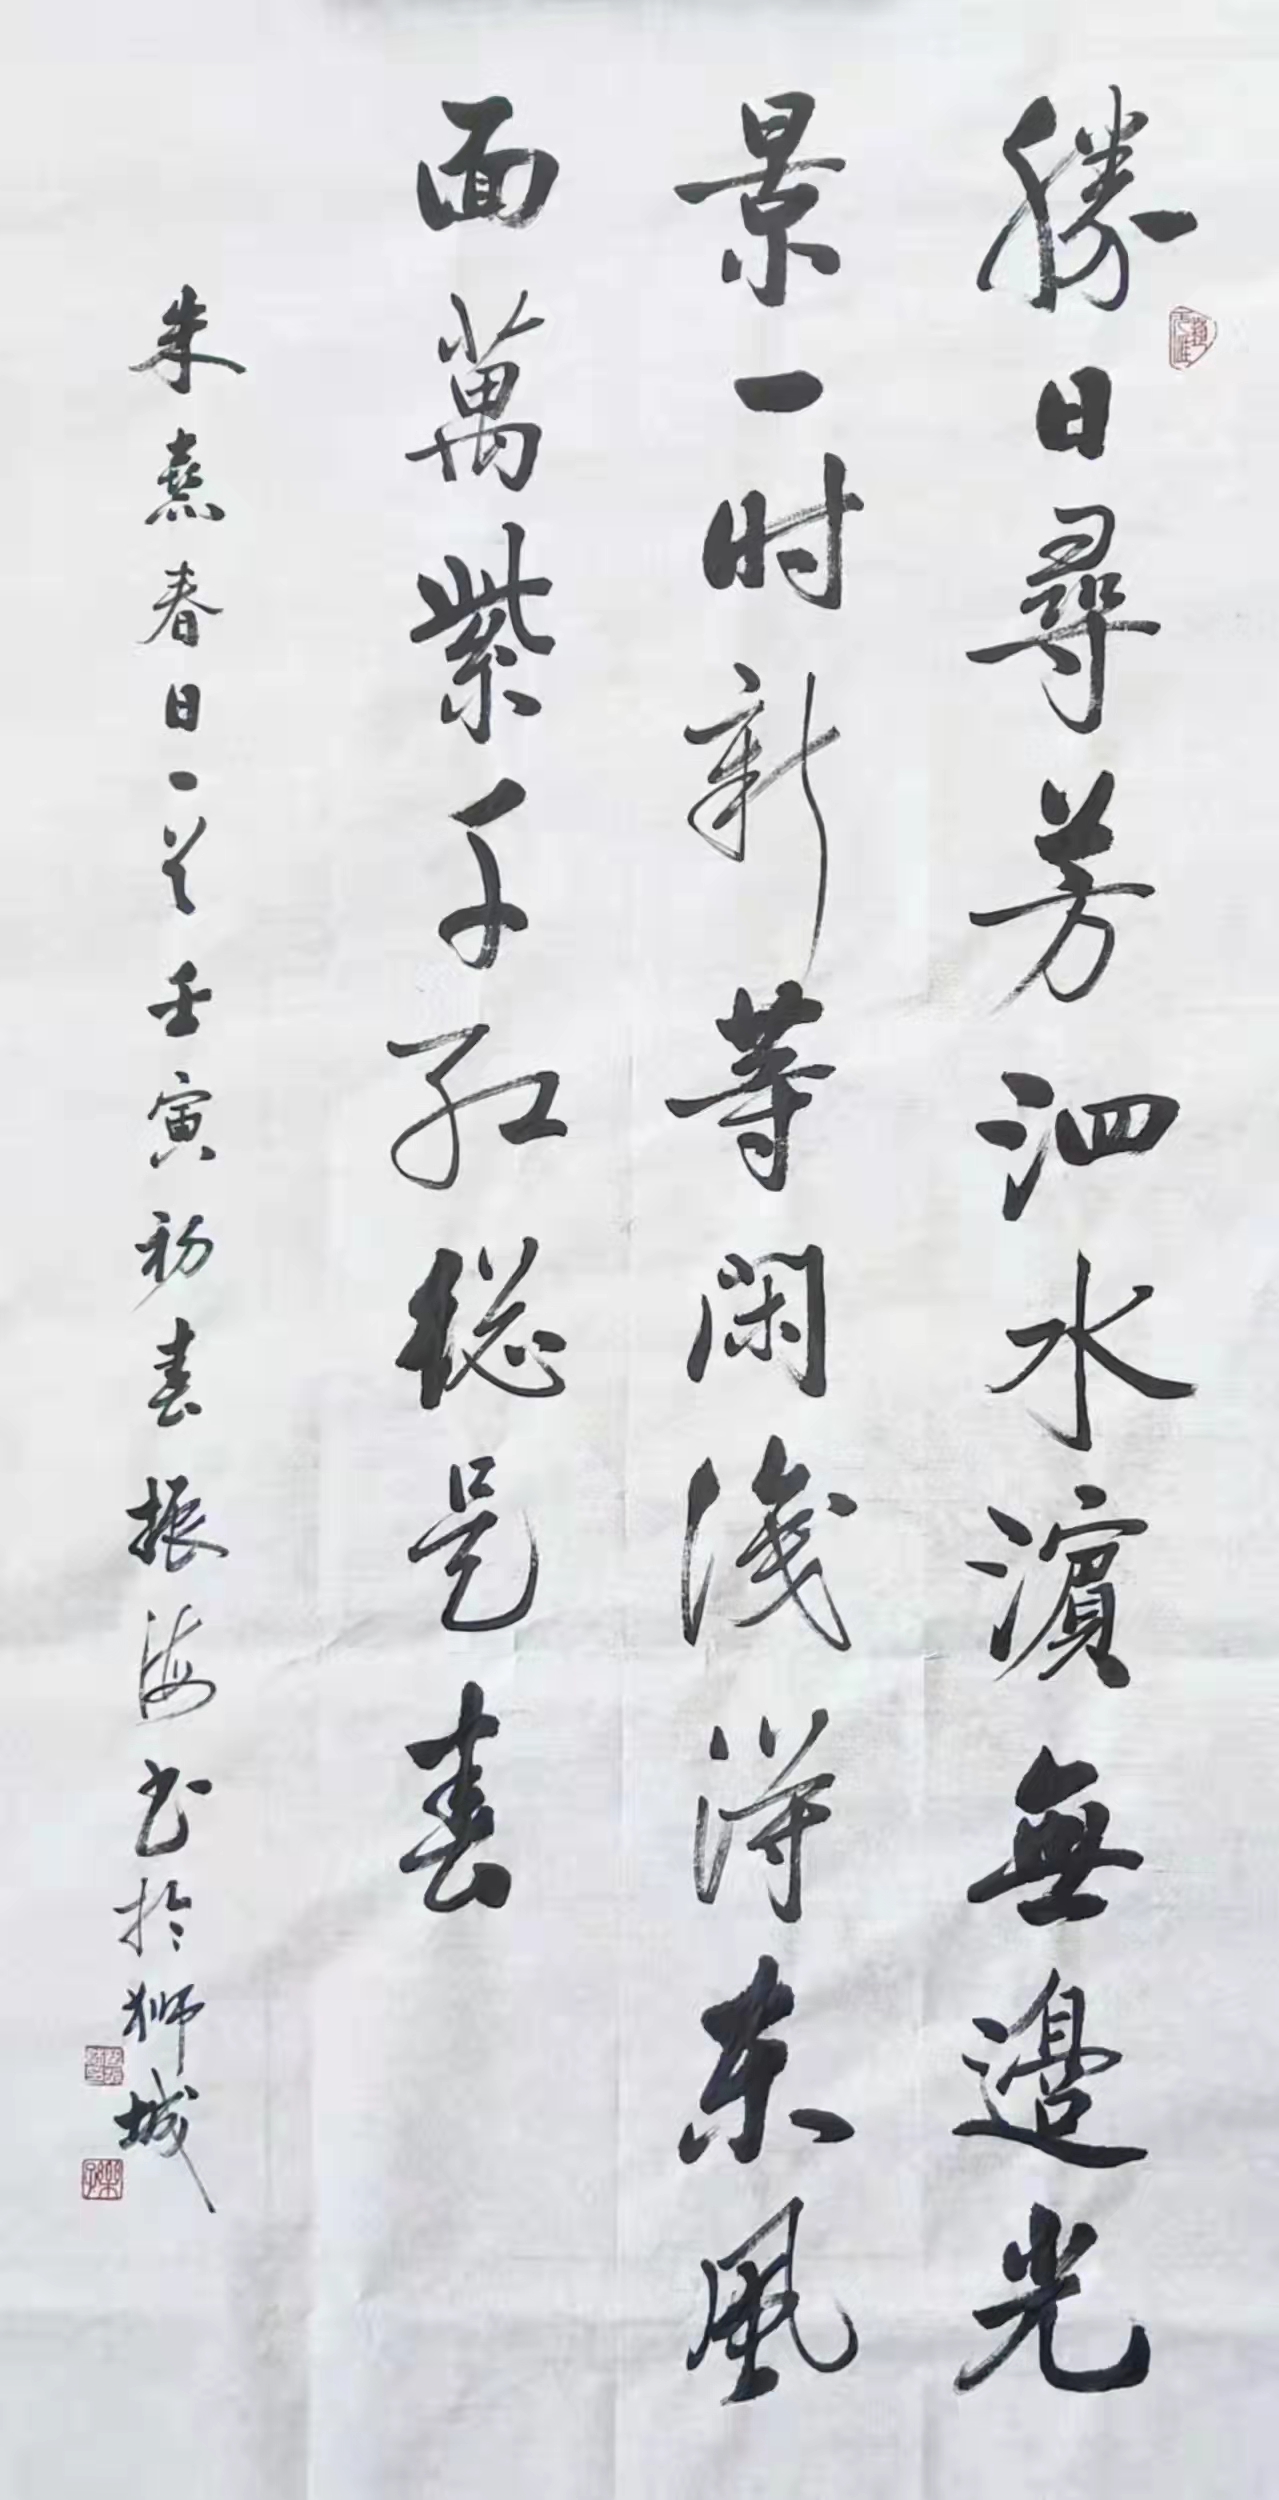 勝日尋芳泗水濵無邊光
景一时新等閑淺得东風
面萬紫千红總是春
朱熹春日一首壬寅初春振海书於狮城